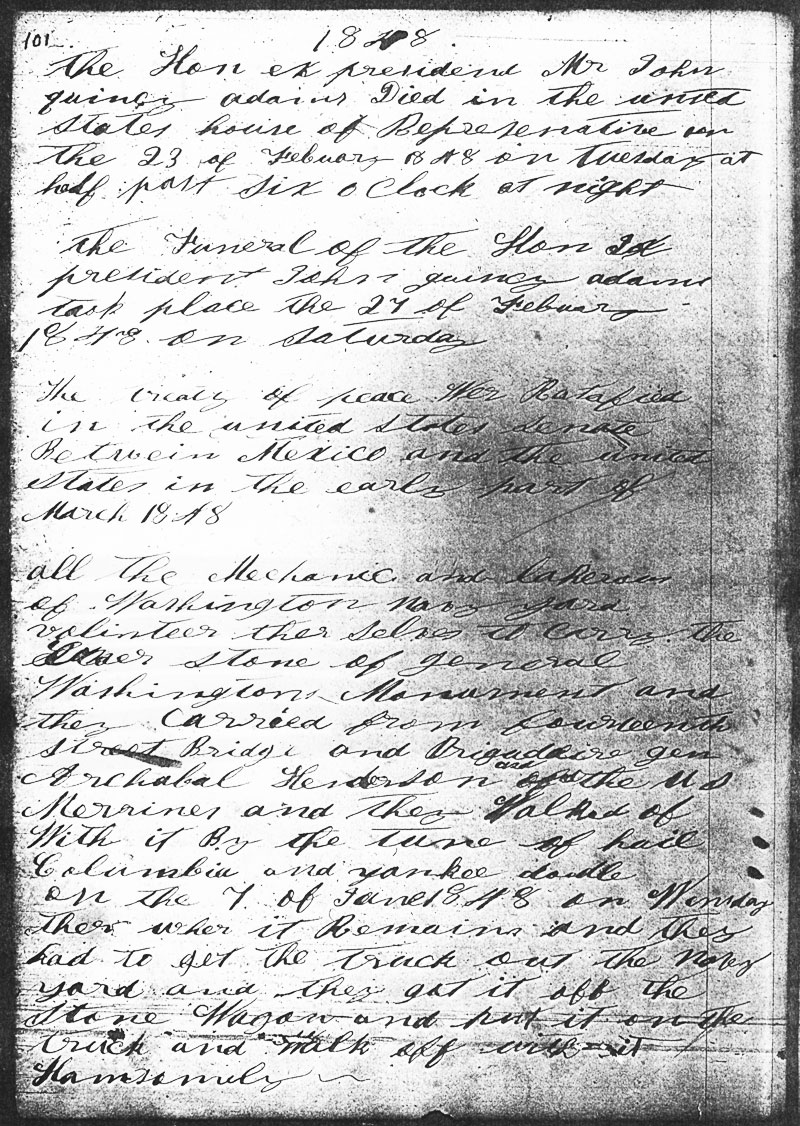 101
1848.
the Hon ex president Mr John
quincy adams Died in the united
states house of Represenative on
the 23 of Febuary 1848 on tuesday at
half past six o Clock at night
the Funeral of the Hon Ex
president John quincy adams
took place the 27 of Febuary
1848 on Saturday
The treaty of peace Wer Ratafied
in the united states senate
Betwein Mexico and the united
states in the early part of
March 1848
all the Mechanic and laberours
of Washington navy yard
volinteer ther selves to Carry the
stone of general
Washingtons Monument and
they Carried from fourteenth
street Bridge and Brigaddire gen
Archabal Henderson and the U S
Merrines and they Walked of
With it By the tune of hail
Columbia and yankee doodle
on the 7 of June 1848 on Wensday
ther wher it Remains and they
had to get the truck out the navy
yard and they got it off the
stone Wagon and put it on the
truck and walk off with it
Hamsomely